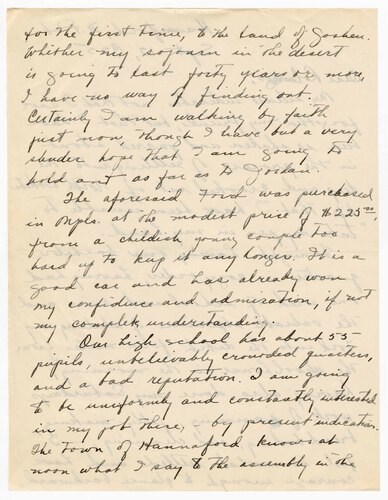 for the first time, to the land of Goshen.
Whether my sojourn in the desert
is going to last forty years or more,
I have no way of finding out.
Certainly I am walking by faith
just now, though I have but a very
slender hope that I am going to
hold out as far as to Goshen.
The aforesaid Ford was purchased
in Mpls. at the modest price of $225.00,
from a childish young couple too
hard up to keep it any longer. It is a
good car and has already won
my confidence and admiration, if not
my complete understanding.
Our high school has about 55
pupils, unbelievably crowded quarters,
and a bad reputation. I am going
to be uniformly and constantly interested
in my job there, by present indication.
The town of Hannaford knows at
noon what I say to the assembly in the